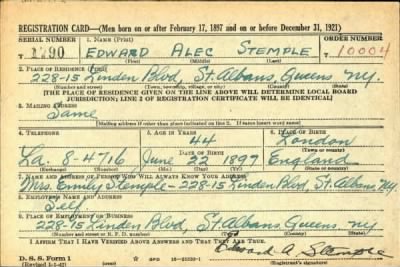 REGISTRATION CARD—(Men born on or after February 17, 1897 and on or before December 31, 1921)
SERIAL NUMBER 1. NAME (Print) ORDER NUMBER
EDWARD ALEC STEMPLE 10004
(First) (Middle) (Last)
2. PLACE OF RESIDENCE (Print)
228-15 Linden Blvd, St. Albans, Queens NY.
(Number and street) (Town, township, village, or city) (County) (State)
[THE PLACE OF RESIDENCE GIVEN ON THE LINE ABOVE WILL DETERMINE LOCAL BOARD
JURISDICTION; LINE 2 OF REGISTRATION CERTIFICATE WILL BE IDENTICAL]
3. MAILING ADDRESS
Same
[Mailing address if other than place indicated on line 2. If same insert word same]
4. TELEPHONE 5. AGE IN YEARS 6. PLACE OF BIRTH
44 London
DATE OF BIRTH (Town or county)
La. 8-4716 June 22 1897 England
(Exchange) (Number) (Mo.) (Day) (Yr.) (State or country)
7. NAME AND ADDRESS OF PERSON WHO WILL ALWAYS KNOW YOUR ADDRESS
Mrs. Emily Stemple-228-15 Linden Blvd, St. Albans, NY.
8. EMPLOYER'S NAME AND ADDRESS
Self
9. PLACE OF EMPLOYMENT OR BUSINESS
228-15 Linden Blvd, St. Albans Queens NY
(Number and street or R. F. D. number) (Town) (County) (State)
I AFFIRM THAT I HAVE VERIFIED ABOVE ANSWERS AND THAT THEY ARE TRUE.
D. S. S. Form 1 GPO Edward A. Stemple
(Revised 1-1-42) (over) (Registrant's signature)